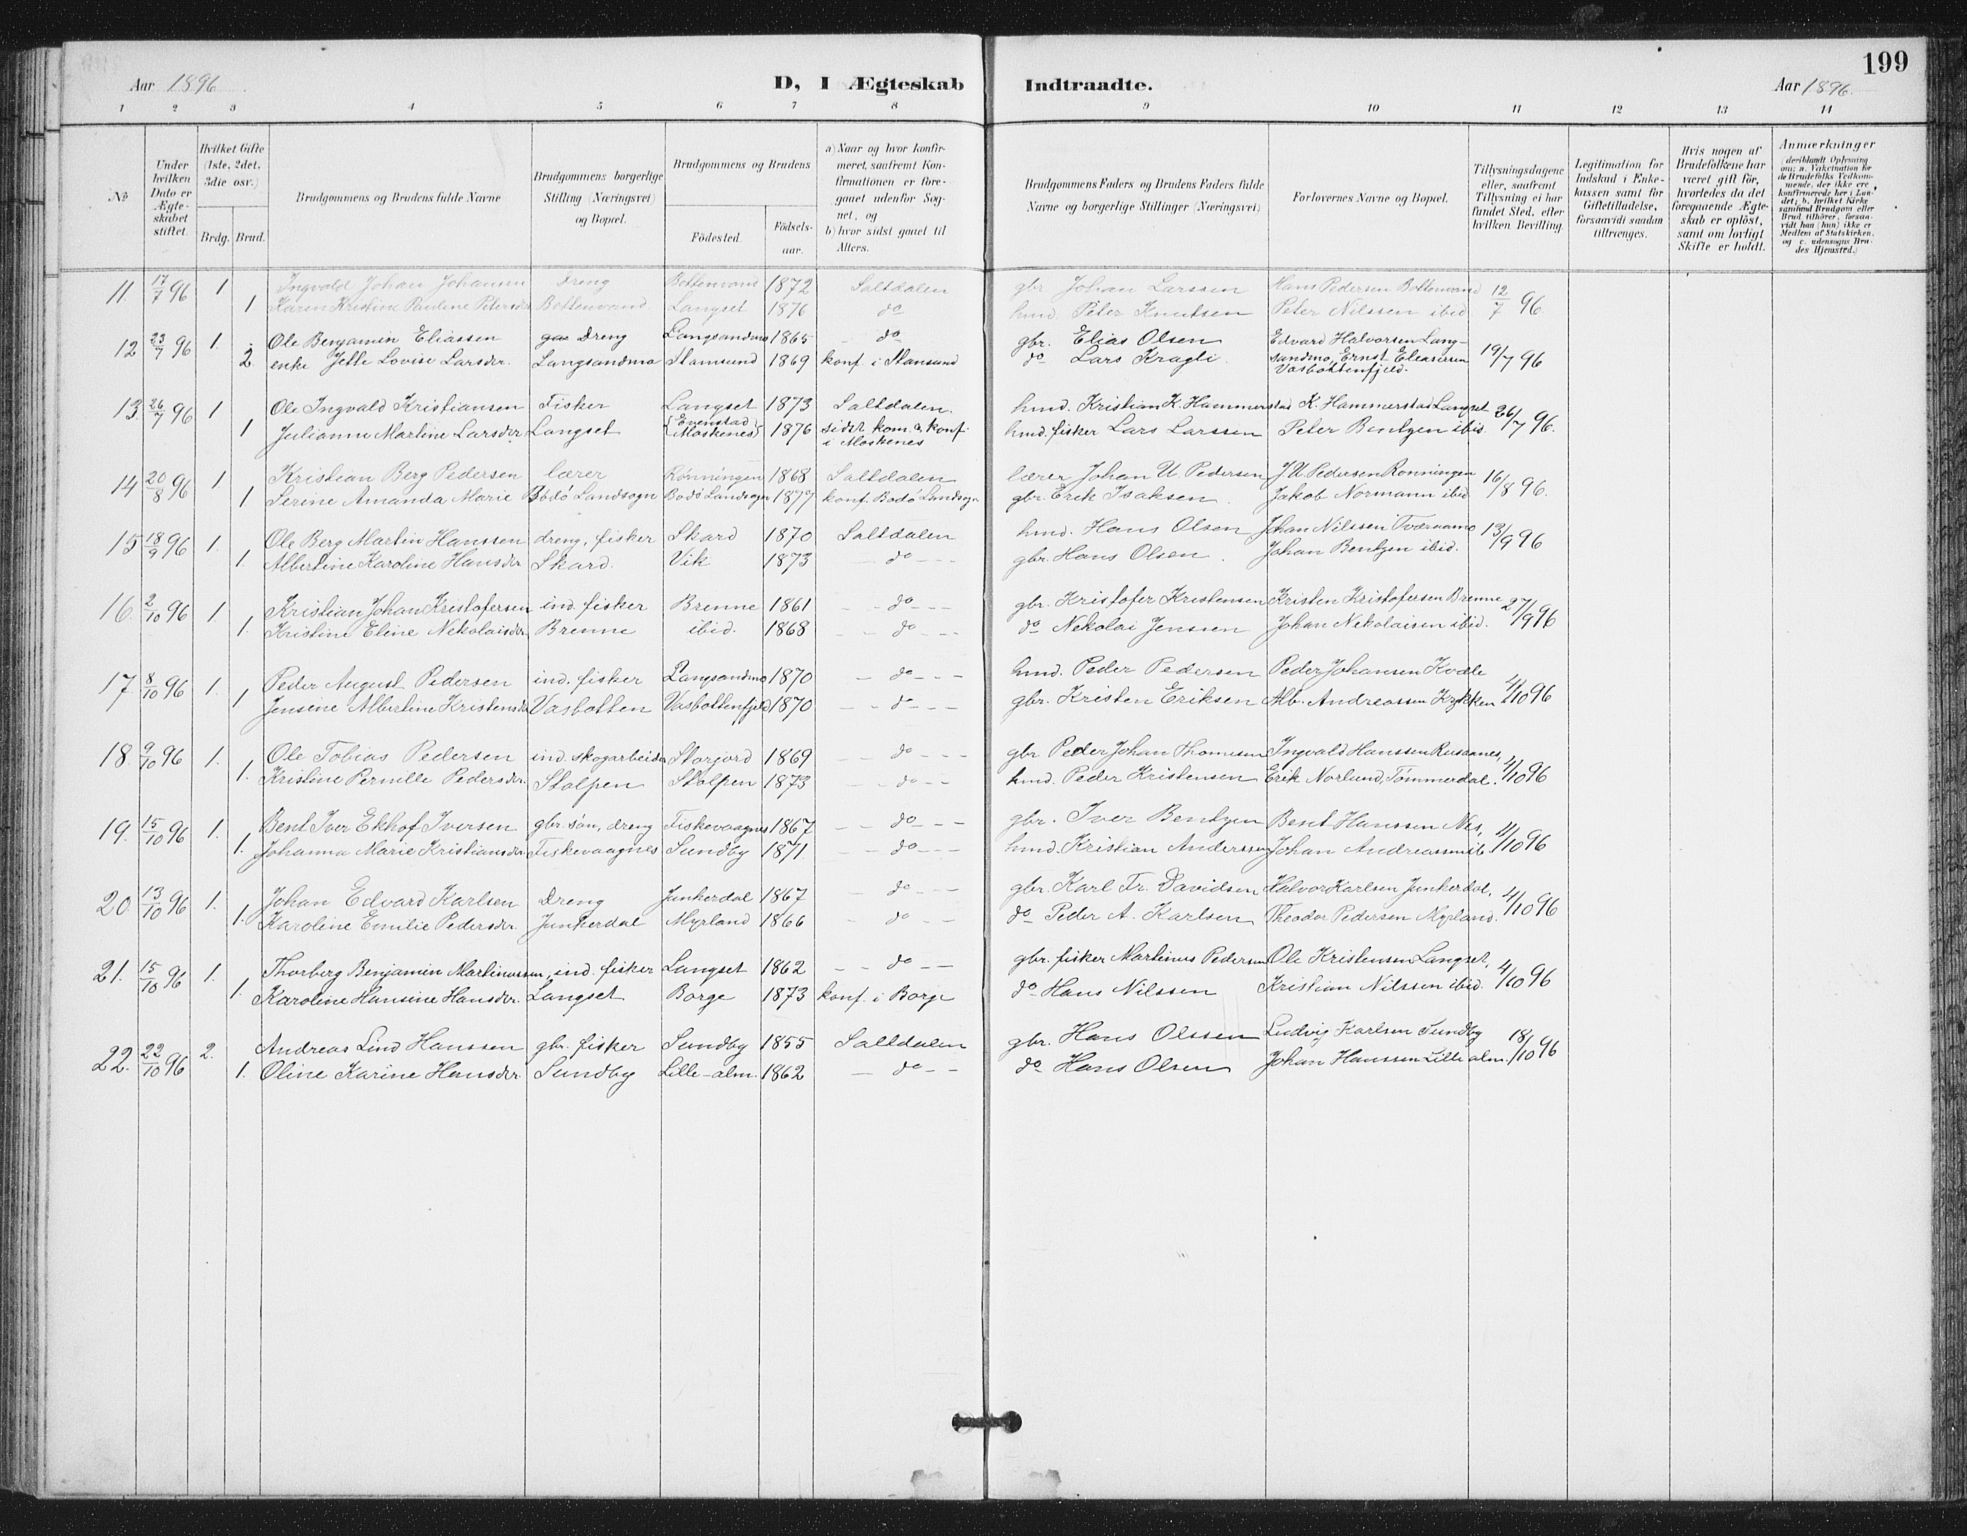 199
Aar 1896. D, I Ægteskab Indtraadte. Aar 1896.
1 2 3 4 5 6 7 8 9 10 11 12 13 14
№
Under hvilken Dato er Ægteskabet stiftet.
Hvilket Gifte (1ste, 2det, 3die osv.)
Brdg. Brud.
Brudgommens og Brudens fulde Navne
Brudgommens borgerlige Stilling (Næringsvei) og Bopæl.
Brudgommens og Brudens
Fødested. Fødselsaar.
a) Naar og hvor konfirmeret, saafremt Konfirmationen er foregaaet udenfor Sognet, og
b) hvor sidst gaaet til Alters.
Brudgommens Faders og Brudens Faders fulde Navne og borgerlige Stillinger (Næringsvei)
Forlovernes Navne og Bopæl.
Tillysningsdagene eller, saafremt Tillysning ei har fundet Sted, efter hvilken Bevilling.
Legitimation for Indskud i Enkekassen samt for Giftetilladelse, forsaavidt saadan tiltrænges.
Hvis nogen af Brudefolkene har været gift før, hvorledes da det foregaaende Ægteskab er opløst, samt om lovligt Skifte er holdt.
Anmærkninger (deriblandt Oplysning om: a. Vakcination for de Brudefolks Vedkommende, der ikke ere konfirmerede her i Landet; b. hvilket Kirkesamfund Brudgom eller Brud tilhører, forsaavidt han (hun) ikke er Medlem af Statskirken, og c. udensogns Brudes Hjemsted.)
11 17/7 96 1 Ingvald Johan Johansen dreng Bottenvand 1872 Saltdalen gbr Johan Larssen Hans Pedersen Bottenvand 12/7 96
1 Karen Kristina Pauline Petersdr Bottenvand Langset 1876 do hmd. Peter Knutsen Peter Nilssen ibid
12 23/7 96 1. Ole Benjamin Eliassen dreng Langsandmo 1865 do gbr. Elias Olsen Edvard Halvorsen Lang-
2. enke Jette Lovise Larsdr. Langsandmo Stamsund 1869 konf. i Stamsund do Lars Kragti. sandmo, Ernst Eleasersen 19/7 96
Vasbottenfjeld.
13 26/7 96 1 Ole Ingvald Kristiansen Fisker Langset 1873 Saltdalen. hmd. Kristian K. Hammerstad K. Hammerstad Langset 26/7 96.
1 Julianna Martine Larsdr Langset {Evenstad i Moskenes} 1876 sidst kom. & konf. i Moskenes hmd. fisker Lars Larssen Peter Bentzen ibid
14 20/8 96 1 Kristian Berg Pedersen lærer Rønningen 1868 Saltdalen lærer Johan U. Pedersen J U. Pedersen Ronningen 16/8 96.
1 Serine Amanda Marie Bodø Landsogn Bodø Landsogn 1877 konf. Bodø Landsogn gbr. Erik Isaksen. Jakob Normann ibid
15 18/9 96 1. Ole Berg Martin Hanssen dreng, fisker Skard 1870 Saltdalen hmd. Hans Olsen Johan Nilssen Tværnamo 13/9 96
1. Albertine Karoline Hansdr Skard. Vik 1873 do gbr. Hans Olsen. Johan Bentzen ibid.
16. 2/10 96 1 Kristian Johan Kristofersen ind. fisker Brenne 1861 do gbr. Kristofer Kristensen Kristen Kristofersen Brenne 27/9 96
1. Kristine Eline Nekolaisdr. Brenne ibid. 1868 do do Nekolai Jenssen Johan Nekolaisen ibid.
17 8/10 96 1. Peder August Pedersen ind. fisker Langsandmo 1870 do hmd. Peder Pedersen Peder Johansen Kvæle
1 Jensene Albertine Kristensdr Vasbotten Vasbottenfjeld 1870 do gbr. Kristen Eriksen Alb. Andreassen Kykken 4/10 96
18. 9/10 96 1. Ole Tobias Pedersen ind. skogarbeider Storjord 1869 do gbr Peder Johan Thomesen Ingvald Hanssen Rusaanes,
1. Kristine Pernille Pedersdr. Stolpen Stolpen 1873 do hmd. Peder Kristensen Erik Norlund, Tømmerdal. 4/10 96
19. 15/10 96 1. Bent Iver Ekhof Iversen gbr. søn, dreng Fiskevaagnes 1867 do gbr. Iver Bentzen Bent Hanssen Nes,
1. Johanna Marie Kristiansdr. Fiskevaagnes Sundby 1871. do hmd. Kristian Anderssen Johan Andreassen ib. 11/10 96
20 13/10 96 1. Johan Edvard Karlsen dreng Junkerdal 1867 do gbr. Karl Fr. Davidsen Halvor Karlsen Junkerdal, 4/10 96
1. Karoline Emilie Pedersdr. Junkerdal Myrland 1866 do do Peder A. Karlsen Theodor Pedersen Myrland.
21. 15/10 96 1. Thorberg Benjamin Martinussen, ind. fisker Langset 1862 do gbr. fisker Martinus Pedersen Ole Kristensen Langset, 4/10 96
1. Karoline Hansine Hansdr. Langset Borge 1873 konf. i Borge do Hans Nilssen Kristian Nilssen ibid.
22. 22/10 96 2. Andreas Lind Hanssen gbr. fisker Sundby 1855 Saltdalen gbr. Hans Olssen Ludvig Karlsen Sundby 18/10 96
1. Oline Karine Hansdr. Sundby Lille-alm. 1862 do do Hans Olsen Johan Hanssen Lille alm.